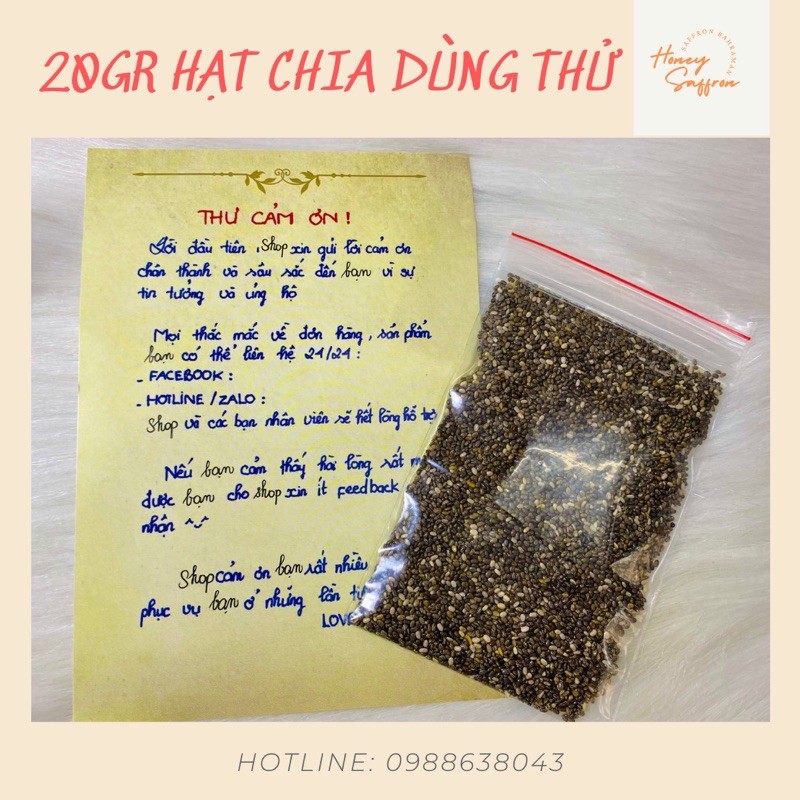 20GR HẠT CHIA DÙNG THỬ
SAFFRON BAHRAMAN
Honey
Saffron
THƯ CẢM ƠN !
Lời đầu tiên , shop xin gửi lời cảm ơn
chân thành và sâu sắc đến bạn vì sự
tin tưởng và ủng hộ
Mọi thắc mắc về đơn hàng , sản phẩm
bạn có thể liên hệ 24/24 :
- FACEBOOK :
- HOTLINE / ZALO :
Shop và các bạn nhân viên sẽ hết lòng hỗ trợ
Nếu bạn cảm thấy hài lòng rất
được bạn cho shop xin ít feedback
nhận ^_^
Shop cảm ơn bạn rất nhiều
phục vụ bạn ở những lần
LOVE
HOTLINE: 0988638043